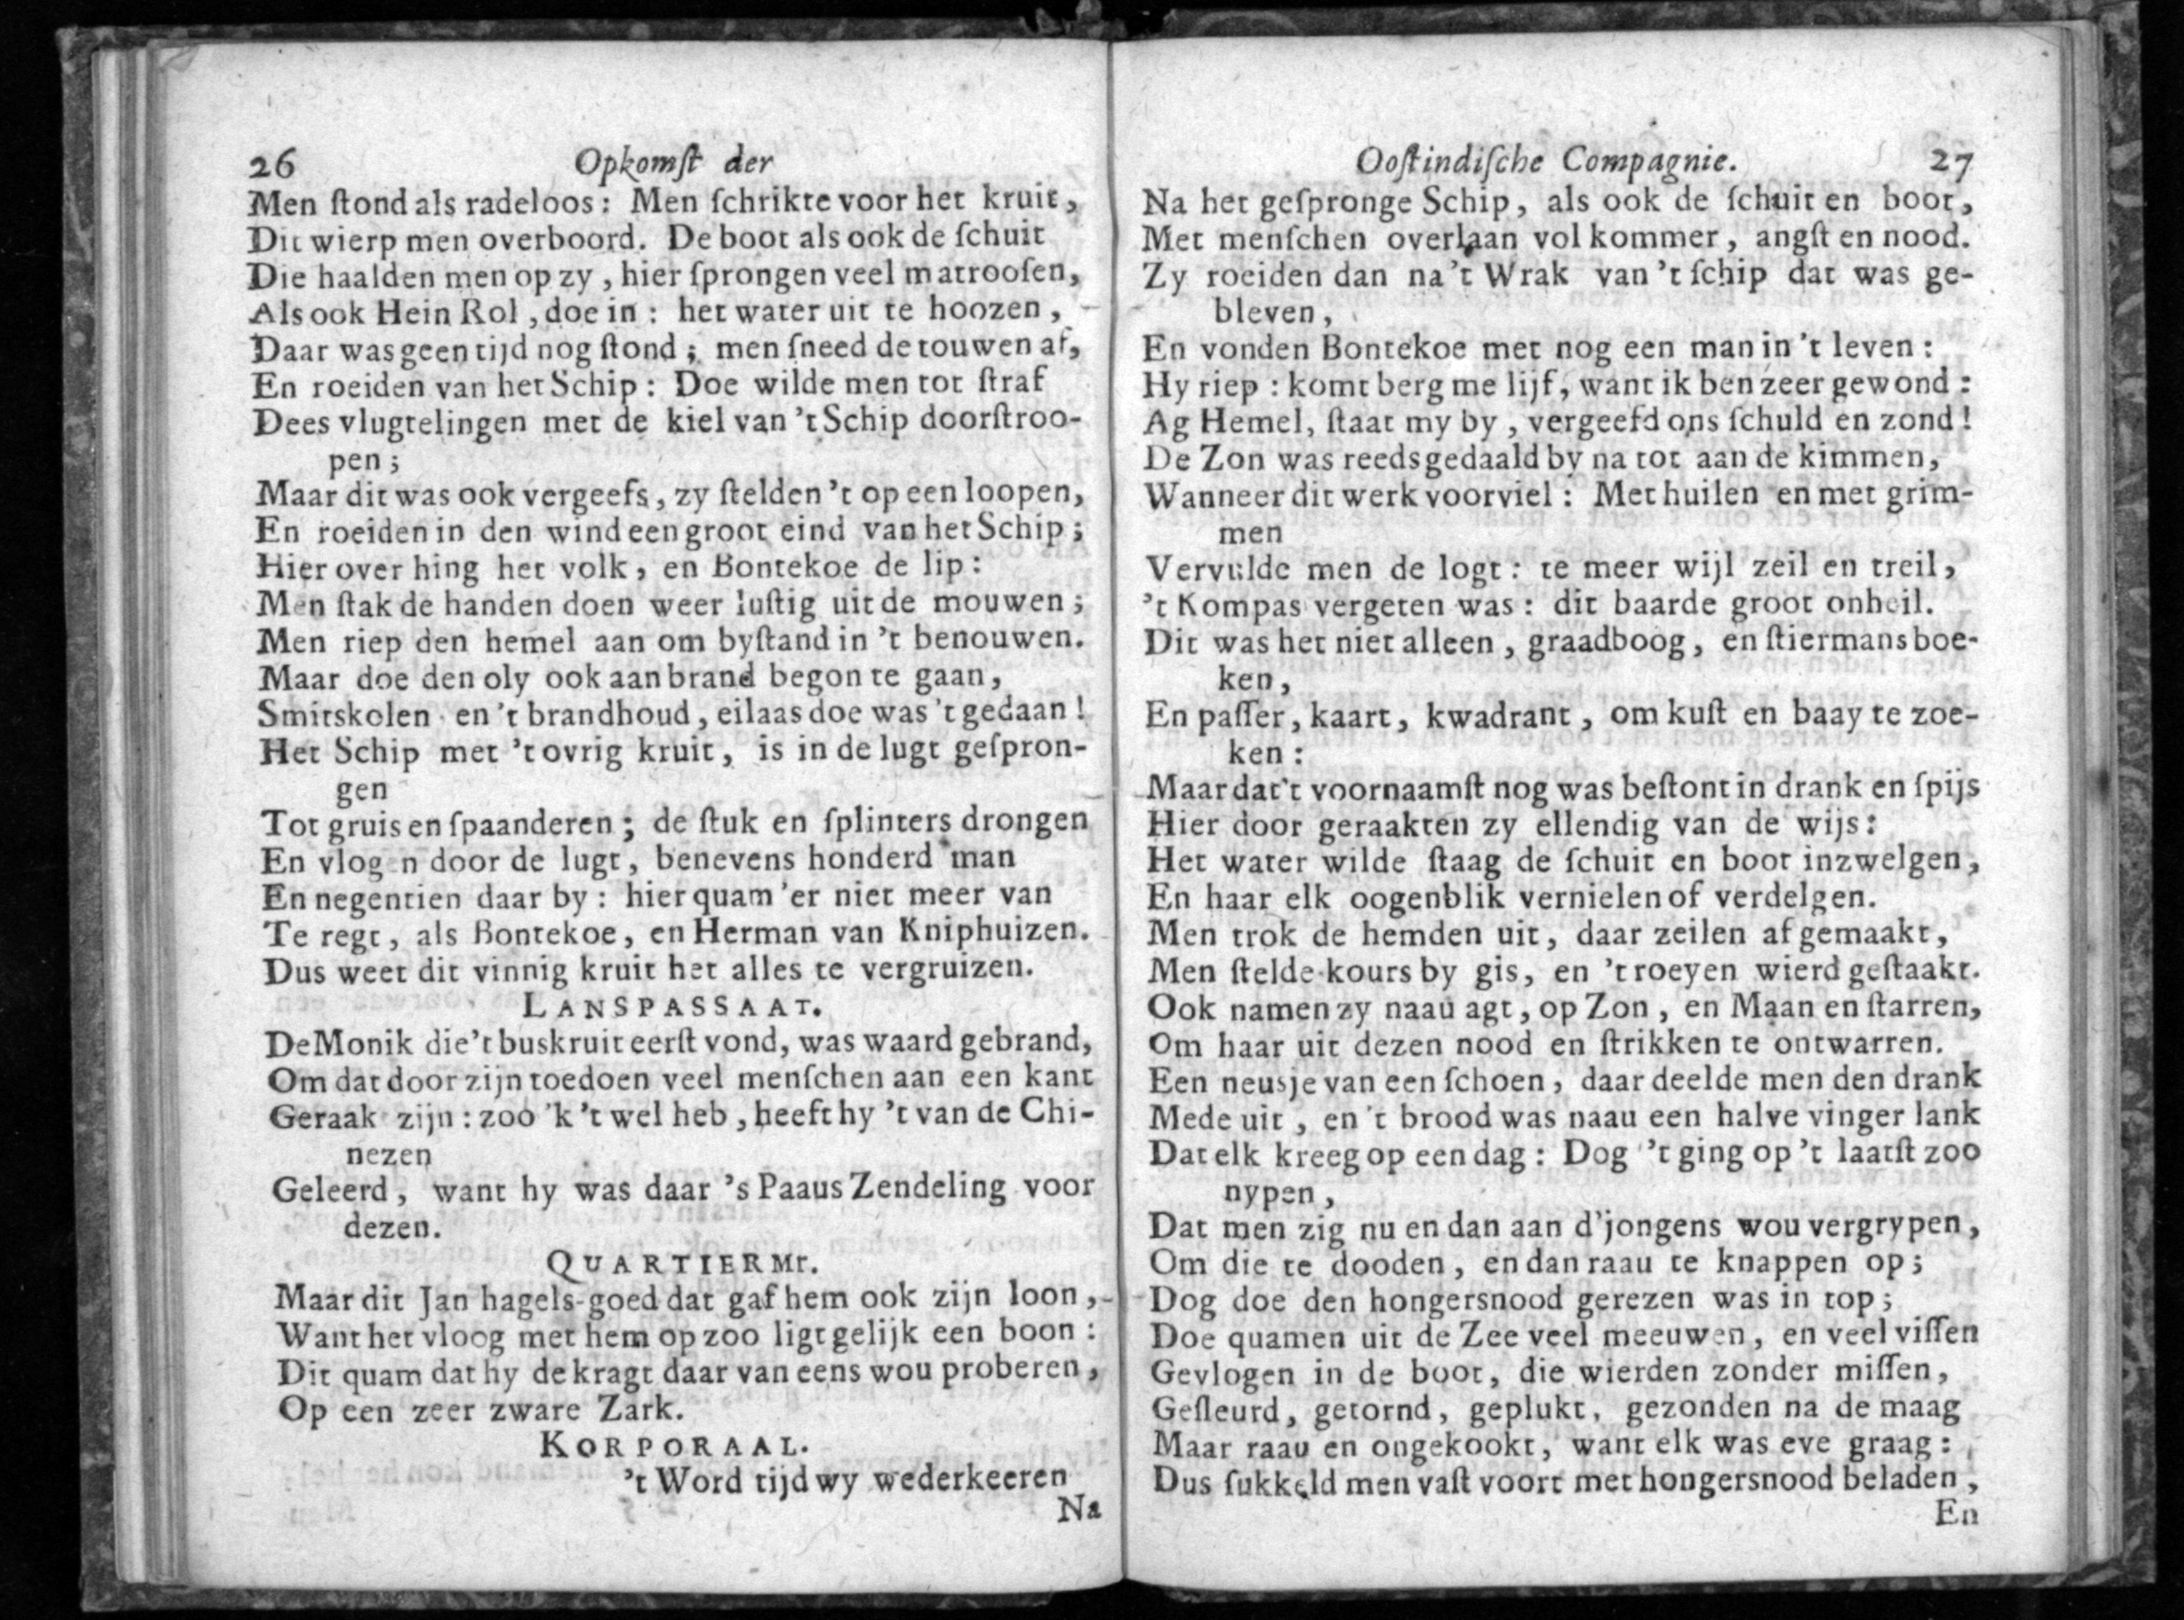 26 Opkomſt der
Men ſtond als radeloos: Men ſchrikte voor het kruit,
Dit wierp men overboord. De boot als ook de ſchuit
Die haalden men op zy, hier ſprongen veel matrooſen,
Als ook Hein Rol, doe in: het water uit te hoozen,
Daar was geen tijd nog ſtond; men ſneed de touwen af,
En roeiden van het Schip: Doe wilde men tot ſtraf
Dees vlugtelingen met de kiel van 't Schip doorſtroo-
pen;
Maar dit was ook vergeefs, zy ſtelden 't op een loopen,
En roeiden in den wind een groot eind van het Schip;
Hier over hing het volk, en Bontekoe de lip:
Men ſtak de handen doen weer luſtig uit de mouwen;
Men riep den hemel aan om byſtand in 't benouwen.
Maar doe den oly ook aan brand begon te gaan,
Smitskolen en 't brandhoud, eilaas doe was 't gedaan!
Het Schip met 't ovrig kruit, is in de lugt geſpron-
gen
Tot gruis en ſpaanderen; de ſtuk en ſplinters drongen
En vlog n door de lugt, benevens honderd man
En negentien daar by: hier quam 'er niet meer van
Te regt, als Bontekoe, en Herman van Kniphuizen.
Dus weet dit vinnig kruit het alles te vergruizen.
LANSPASSAAT.
De Monik die 't buskruit eerſt vond, was waard gebrand,
Om dat door zijn toedoen veel menſchen aan een kant
Geraak zijn: zoo 'k 't wel heb, heeft hy 't van de Chi-
nezen
Geleerd, want hy was daar 's Paaus Zendeling voor
dezen.
QUARTIERMr.
Maar dit Jan hagels-goed dat gaf hem ook zijn loon,
Want het vloog met hem op zoo ligt gelijk een boon:
Dit quam dat hy de kragt daar van eens wou proberen,
Op een zeer zware Zark.
KORPORAAL.
't Word tijd wy wederkeeren
Na
Ooſtindiſche Compagnie. 27
Na het geſpronge Schip, als ook de ſchuit en boot,
Met menſchen overlaan vol kommer, angſt en nood.
Zy roeiden dan na 't Wrak van 't ſchip dat was ge-
bleven,
En vonden Bontekoe met nog een man in 't leven:
Hy riep: komt berg me lijf, want ik ben zeer gewond:
Ag Hemel, ſtaat my by, vergeefd ons ſchuld en zond!
De Zon was reeds gedaald by na tot aan de kimmen,
Wanneer dit werk voorviel: Met huilen en met grim-
men
Vervulde men de logt: te meer wijl zeil en treil,
't Kompas vergeten was: dit baarde groot onheil.
Dit was het niet alleen, graadboog, en ſtiermans boe-
ken,
En paſſer, kaart, kwadrant, om kuſt en baay te zoe-
ken:
Maar dat 't voornaamſt nog was beſtont in drank en ſpijs
Hier door geraakten zy ellendig van de wijs:
Het water wilde ſtaag de ſchuit en boot inzwelgen,
En haar elk oogenblik vernielen of verdelgen.
Men trok de hemden uit, daar zeilen af gemaakt,
Men ſtelde kours by gis, en 't roeyen wierd geſtaakt.
Ook namen zy naau agt, op Zon, en Maan en ſtarren,
Om haar uit dezen nood en ſtrikken te ontwarren.
Een neusje van een ſchoen, daar deelde men den drank
Mede uit, en 't brood was naau een halve vinger lank
Dat elk kreeg op een dag: Dog 't ging op 't laatſt zoo
nypen,
Dat men zig nu en dan aan d'jongens wou vergrypen,
Om die te dooden, en dan raau te knappen op;
Dog doe den hongersnood gerezen was in top;
Doe quamen uit de Zee veel meeuwen, en veel viſſen
Gevlogen in de boot, die wierden zonder miſſen,
Geſleurd, getornd, geplukt, gezonden na de maag
Maar raau en ongekookt, want elk was eve graag:
Dus ſukkeld men vaſt voort met hongersnood beladen,
En